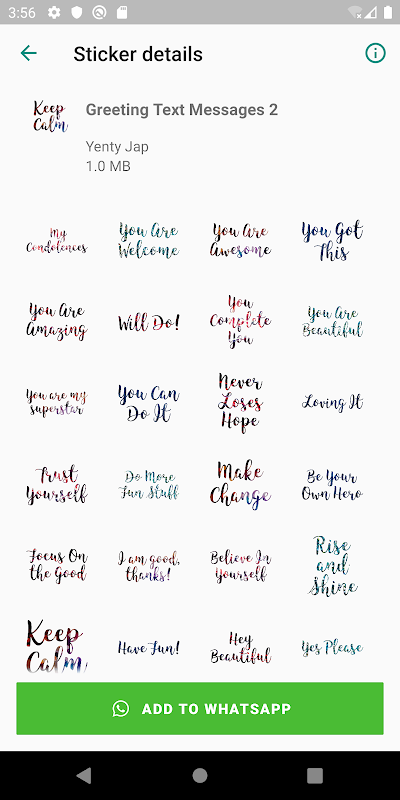 3:56
Sticker details
Keep
Calm
Greeting Text Messages 2
Yenty Jap
1.0 MB
My
Condolences
You Are
Welcome
You Are
Awesome
You Got
This
You Are
Amazing
Will Do!
You
Complete
You
You Are
Beautiful
You are my
superstar
You Can
Do It
Never
Loses
Hope
Loving It
Trust
Yourself
Do More
Fun Stuff
Make
Change
Be Your
Own Hero
Focus On
the Good
I am good,
thanks!
Believe In
Yourself
Rise
and
Shine
Keep
Calm
Have Fun!
Hey
Beautiful
Yes Please
ADD TO WHATSAPP